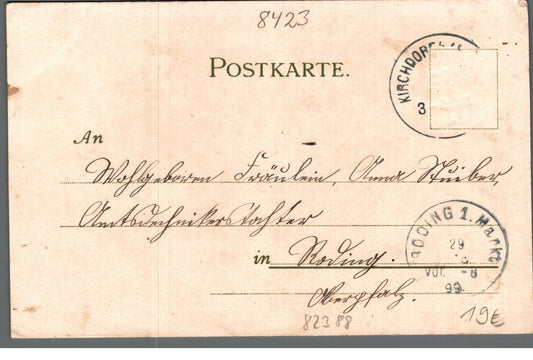 8423
POSTKARTE.
KIRCHDORF
3
An
Wohlgeboren Fräulein, Anna Stuiber,
Amtstechnikerstochter
in Roding.
Oberpfalz.
RODING 1. Markt
29
VOR. -8
99
82388
19€